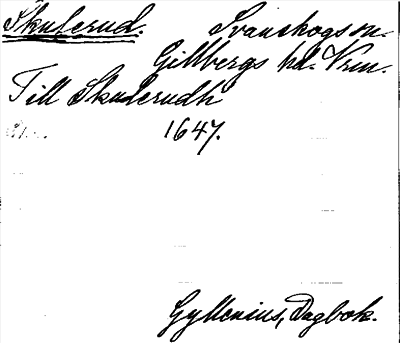 Skulerud. Svanskogs sn.
Gillbergs hd. Vrm.
Till Skulerudh
1647.
Gyllenius, Dagbok.